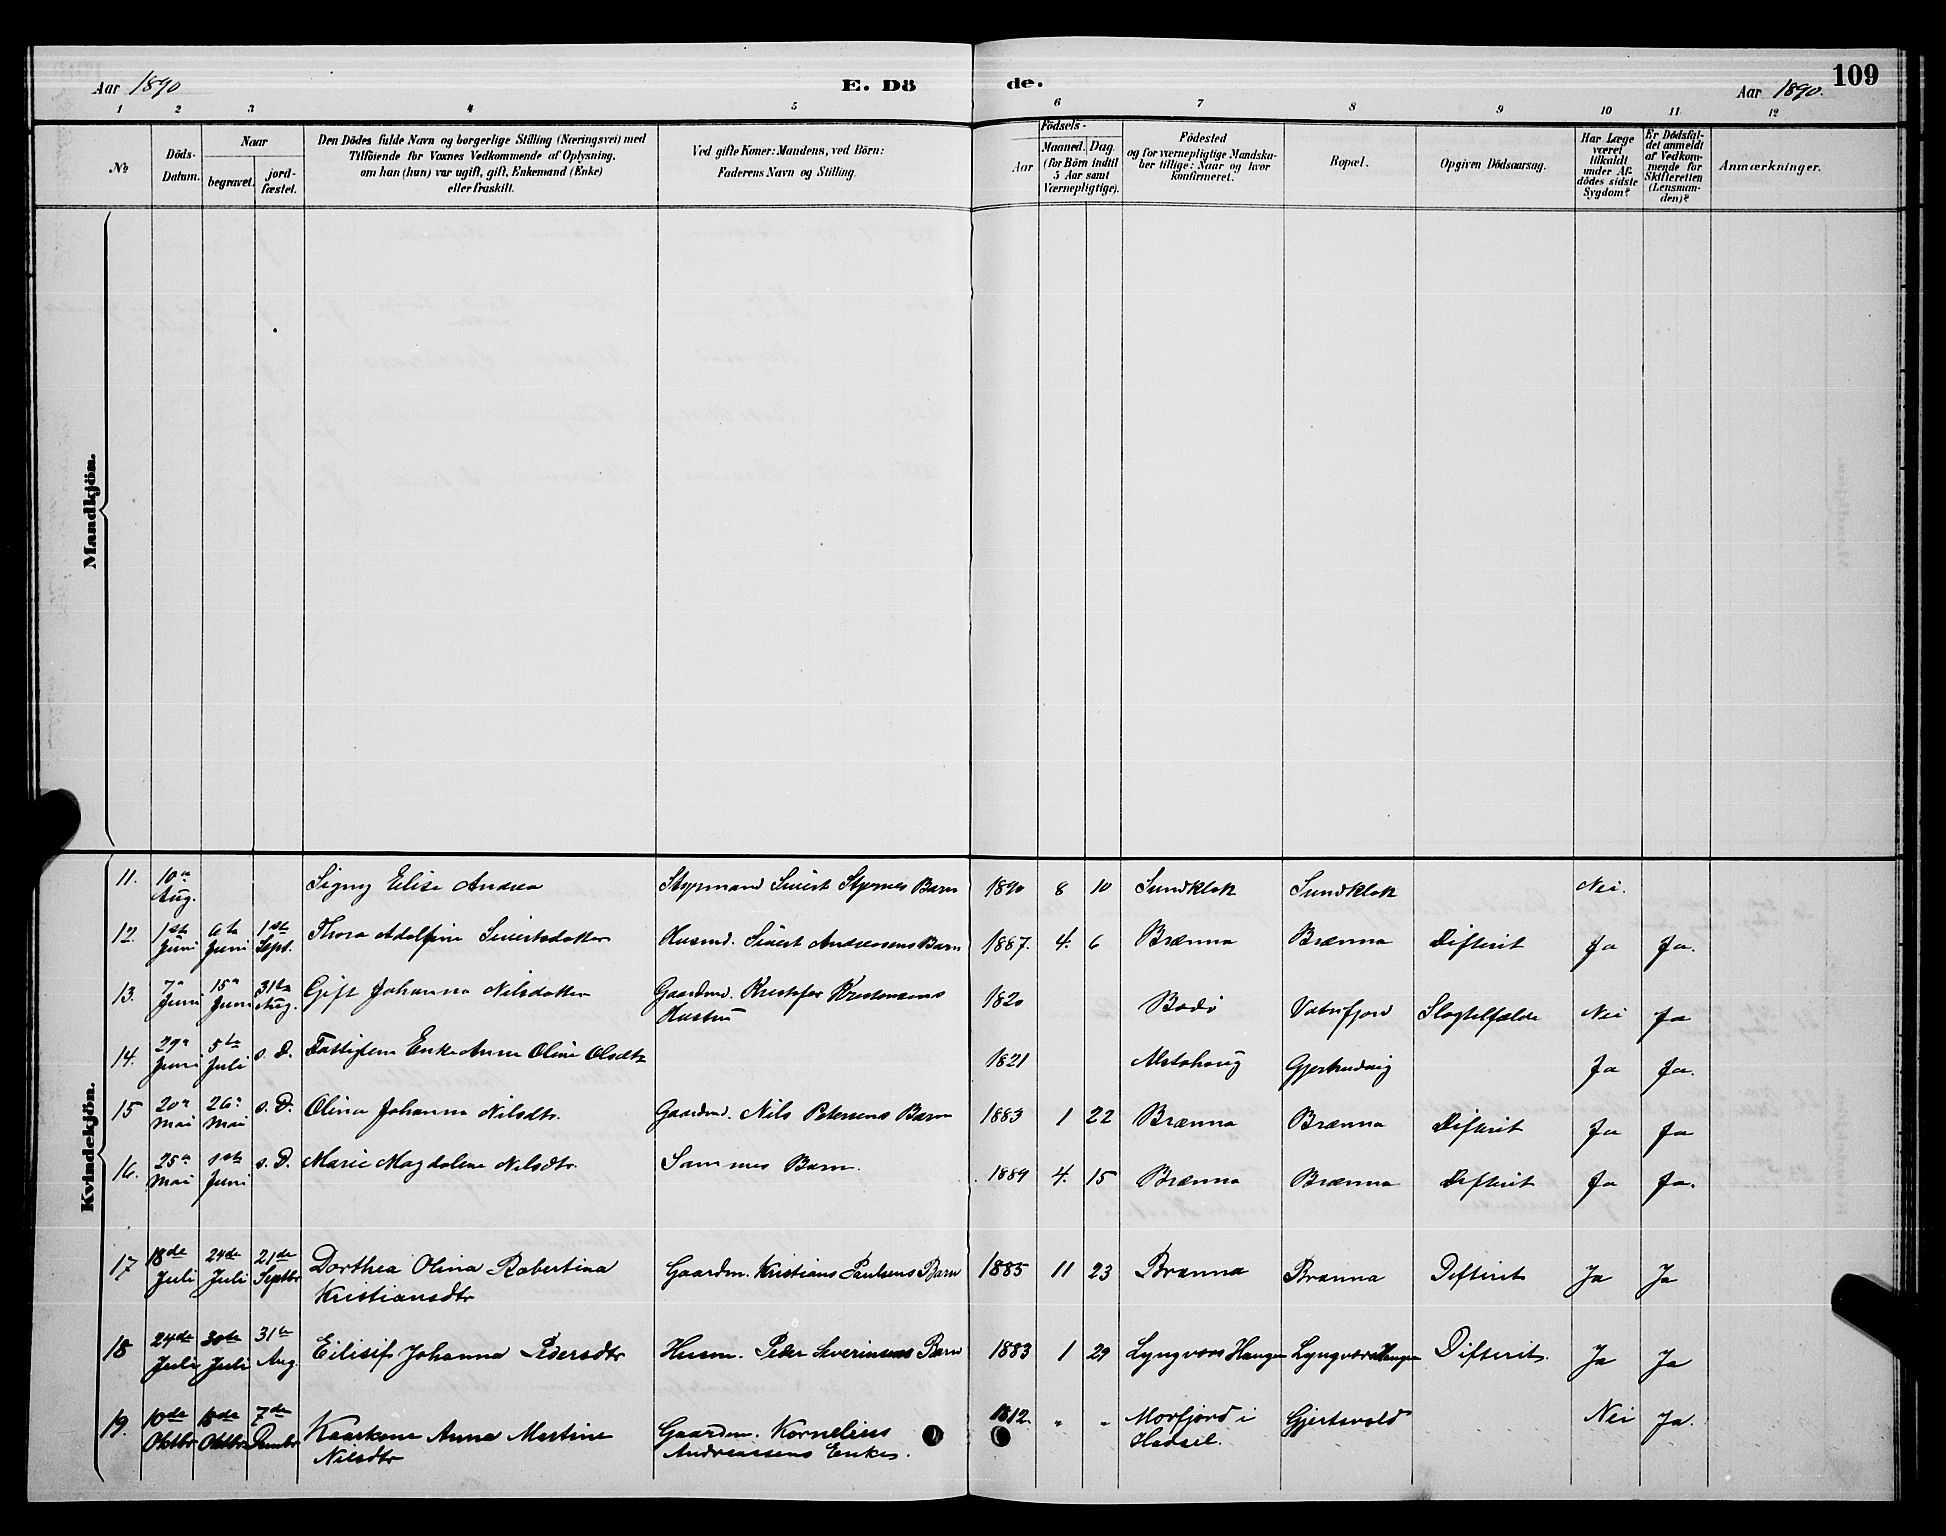 Aar 1890
E. Dö
de.
Aar 1890.
109
1 2 3 4 5 6 7 8 9 10 11 12
№
Döds-
Datum.
Naar
begravet.
jord-
fæstet.
Den Dödes fulde Navn og borgerlige Stilling (Næringsvei) med
Tilföiende for Voxnes Vedkommende af Oplysning,
om han (hun) var ugift, gift, Enkemand (Enke)
eller fraskilt.
Ved gifte Koner: Mandens, ved Börn:
Faderens Navn og Stilling.
Födsels-
Aar
Maaned.
Dag.
(for Börn indtil
5 Aar samt
Værnepligtige).
Födested
og for værnepligtige Mandska-
ber tillige: Naar og hvor
konfirmeret.
Bopæl.
Opgiven Dödsaarsag.
Har Læge
været
tilkaldt
under Af-
dödes sidste
Sygdom?
Er Dödsfal-
det anmeldt
af Vedkom-
mende for
Skifteretten
(Lensman-
den)?
Anmærkninger.
Mandkjön.
Kvindekjön.
11. 10de Aug. Signy Elise Andrea Styrmand Sivert Styrnes Barn 1890 8 10 Sundklak Sundklak Nei.
12. 1ste Juni 6te Juni 1ste Sept. Thora Adolfine Sivertsdatter Husmd. Sivert Andreasens Barn 1887. 4. 6 Brænna Brænna Difterit Ja Ja.
13. 7de Juni 15de Juni 31te Aug. Gift Johanna Nilsdatter Gaardmd. Kristofer Kristensens
Hustru 1820 Bodö Vatnfjord Slagtilfælde Nei Ja
14. 29de Juni 5te Juli s. D. Fattiglem Enke Anne Oline Olsdtr 1821 Alstahoug Ja Ja.
15 20de Mai 26de Mai s. D. Olina Johanna Nilsdtr. Gaardmd. Nils Petersens Barn 1883 1 22 Brænna Brænna Difterit Ja Ja
16. 25de Mai 1ste Juni s. D. Marie Magdalene Nilsdtr. Sammes Barn. 1889 4. 15 Brænna Brænna Difterit Ja Ja.
17 18de Juli 24de Juli 21de Septbr Dorthea Olina Robertina
Kristiansdtr Gaardm. Kristians Paulsens Barn 1885 11 23 Brænna Brænna Difterit Ja Ja
18 24de Juli 30te Juli 31te Aug. Eilisif Johanna Pedersdtr Husm. Peder Severinsens Barn 1883 1 29 Lyngvær Haugen Lyngvær Haugen Difterit. Ja Ja
19. 10de Oktbr 18de Oktbr 7de Kaarkone Anna Martine
Nilsdtr Gaardm. Kornelius
Andreassens Enke. 1812. " " Morfjord i
Hadsel. Gjertsvold Nei Ja.